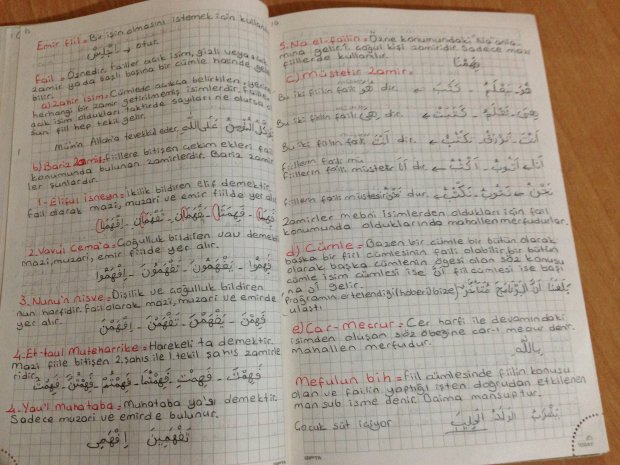 Emir fiil = Bir işin olmasını istemek için kullanı
اِجْلِسْ → otur.
Fail = Öznedir. Failler açık isim, gizli veya açık
zamir ya da başlı başına bir cümle halinde gele
bilir.
a) Zahir isim = Cümlede açıkça belirtilen, yerine
herhangi bir zamir getirilmemiş isimlerdir. Failler
açık isim oldukları taktirde sayıları ne olursa ol
sun fiil hep tekil gelir.
Mümin Allah'a tevekkül eder. عَلَى اللّٰهِ
b) Bariz Zamir = Fiillere bitişen çekim ekleri fail
konumunda bulunan zamirlerdir. Bariz zamir
ler şunlardır.
1- Eliful isneyn = İkilik bildiren elif demektir.
Fail olarak mazi, muzari ve emir fiilde yer alır.
فَهِمَا - فَهِمَتَا - يَفْهَمَانِ - تَفْهَمَانِ - اِفْهَمَا
2. Vavul Cema'a = Çoğulluk bildiren vav demektir
mazi, muzari, emir fiilde yer alır.
فَهِمُوا - يَفْهَمُونَ - تَفْهَمُونَ - اِفْهَمُوا
3. Nunu'n nisve = Dişilik ve çoğulluk bildiren
nun harfidir. Fail olarak mazi, muzari ve emirde
yer alır.
فَهِمْنَ - يَفْهَمْنَ - تَفْهَمْنَ - اِفْهَمْنَ
4- Et-taul Muteharrike = Harekeli ta demektir.
Mazi fiile bitişen 2. şahıs ile 1. tekil şahıs zamirle
ridir.
فَهِمْتَ - فَهِمْتِ - فَهِمْتُمَا - فَهِمْتُمْ - فَهِمْتُنَّ - فَهِمْتُ
4- Yau'l Muhataba = Muhataba ya'sı demektir.
Sadece muzari ve emirde bulunur.
تَفْهَمِينَ - اِفْهَمِي
5. Na el-failin = Özne konumundaki "Na" anla
mına gelir. 1. çoğul kişi zamiridir. Sadece mazi
fiillerde kullanılır.
فَهِمْنَا
c) Müstetir Zamir =
Bu iki fiilin faili هُوَ dir. ← كَتَبَ - يَعْلَمُ - هُوَ
Bu iki fiilin faili هِيَ dir. ← كَتَبَتْ - تَعْلَمُ - هِيَ
Bu iki fiilin faili أَنْتَ dir. ← تَكْتُبُ - أَنْتَ
Fiillerin faili mü
Fiillerin faili müstetir أَنَا dir. ← أَكْتُبُ - أَتُوبُ - أَنَا
Fiillerin faili müstetir نَحْنُ dur. ← نَكْتُبُ - نَتُوبُ - نَحْنُ
Zamirler mebni isimlerden oldukları için fail
konumunda olduklarında mahallen merfudurlar.
d) Cümle = Bazen bir cümle bir bütün olarak
başka bir fiil cümlesinin faili olabilir. bir bütün
olarak başka cümlenin ögesi olan söz konusu
cümle isim cümlesi ise أَنَّ fiil cümlesi ise başı
na أَنْ gelir.
Programın ertelendiği (haberi) bize بَلَغَنَا أَنَّ الْبَرْنَامَجَ
ulaştı
e) Car-Mecrur = Cer harfi ile devamındaki
isimden oluşan söz öbeğine car-ı mecrur denir.
mahallen merfudur.
بِاللّٰهِ
Mefulun bih = fiil cümlesinde fiilin konusu
olan ve failin yaptığı işten doğrudan etkilenen
mansub isme denir. Daima mansuptur.
Çocuk süt içiyor يَشْرَبُ الْوَلَدُ الْحَلِيبَ
GIPTA
GIPTA